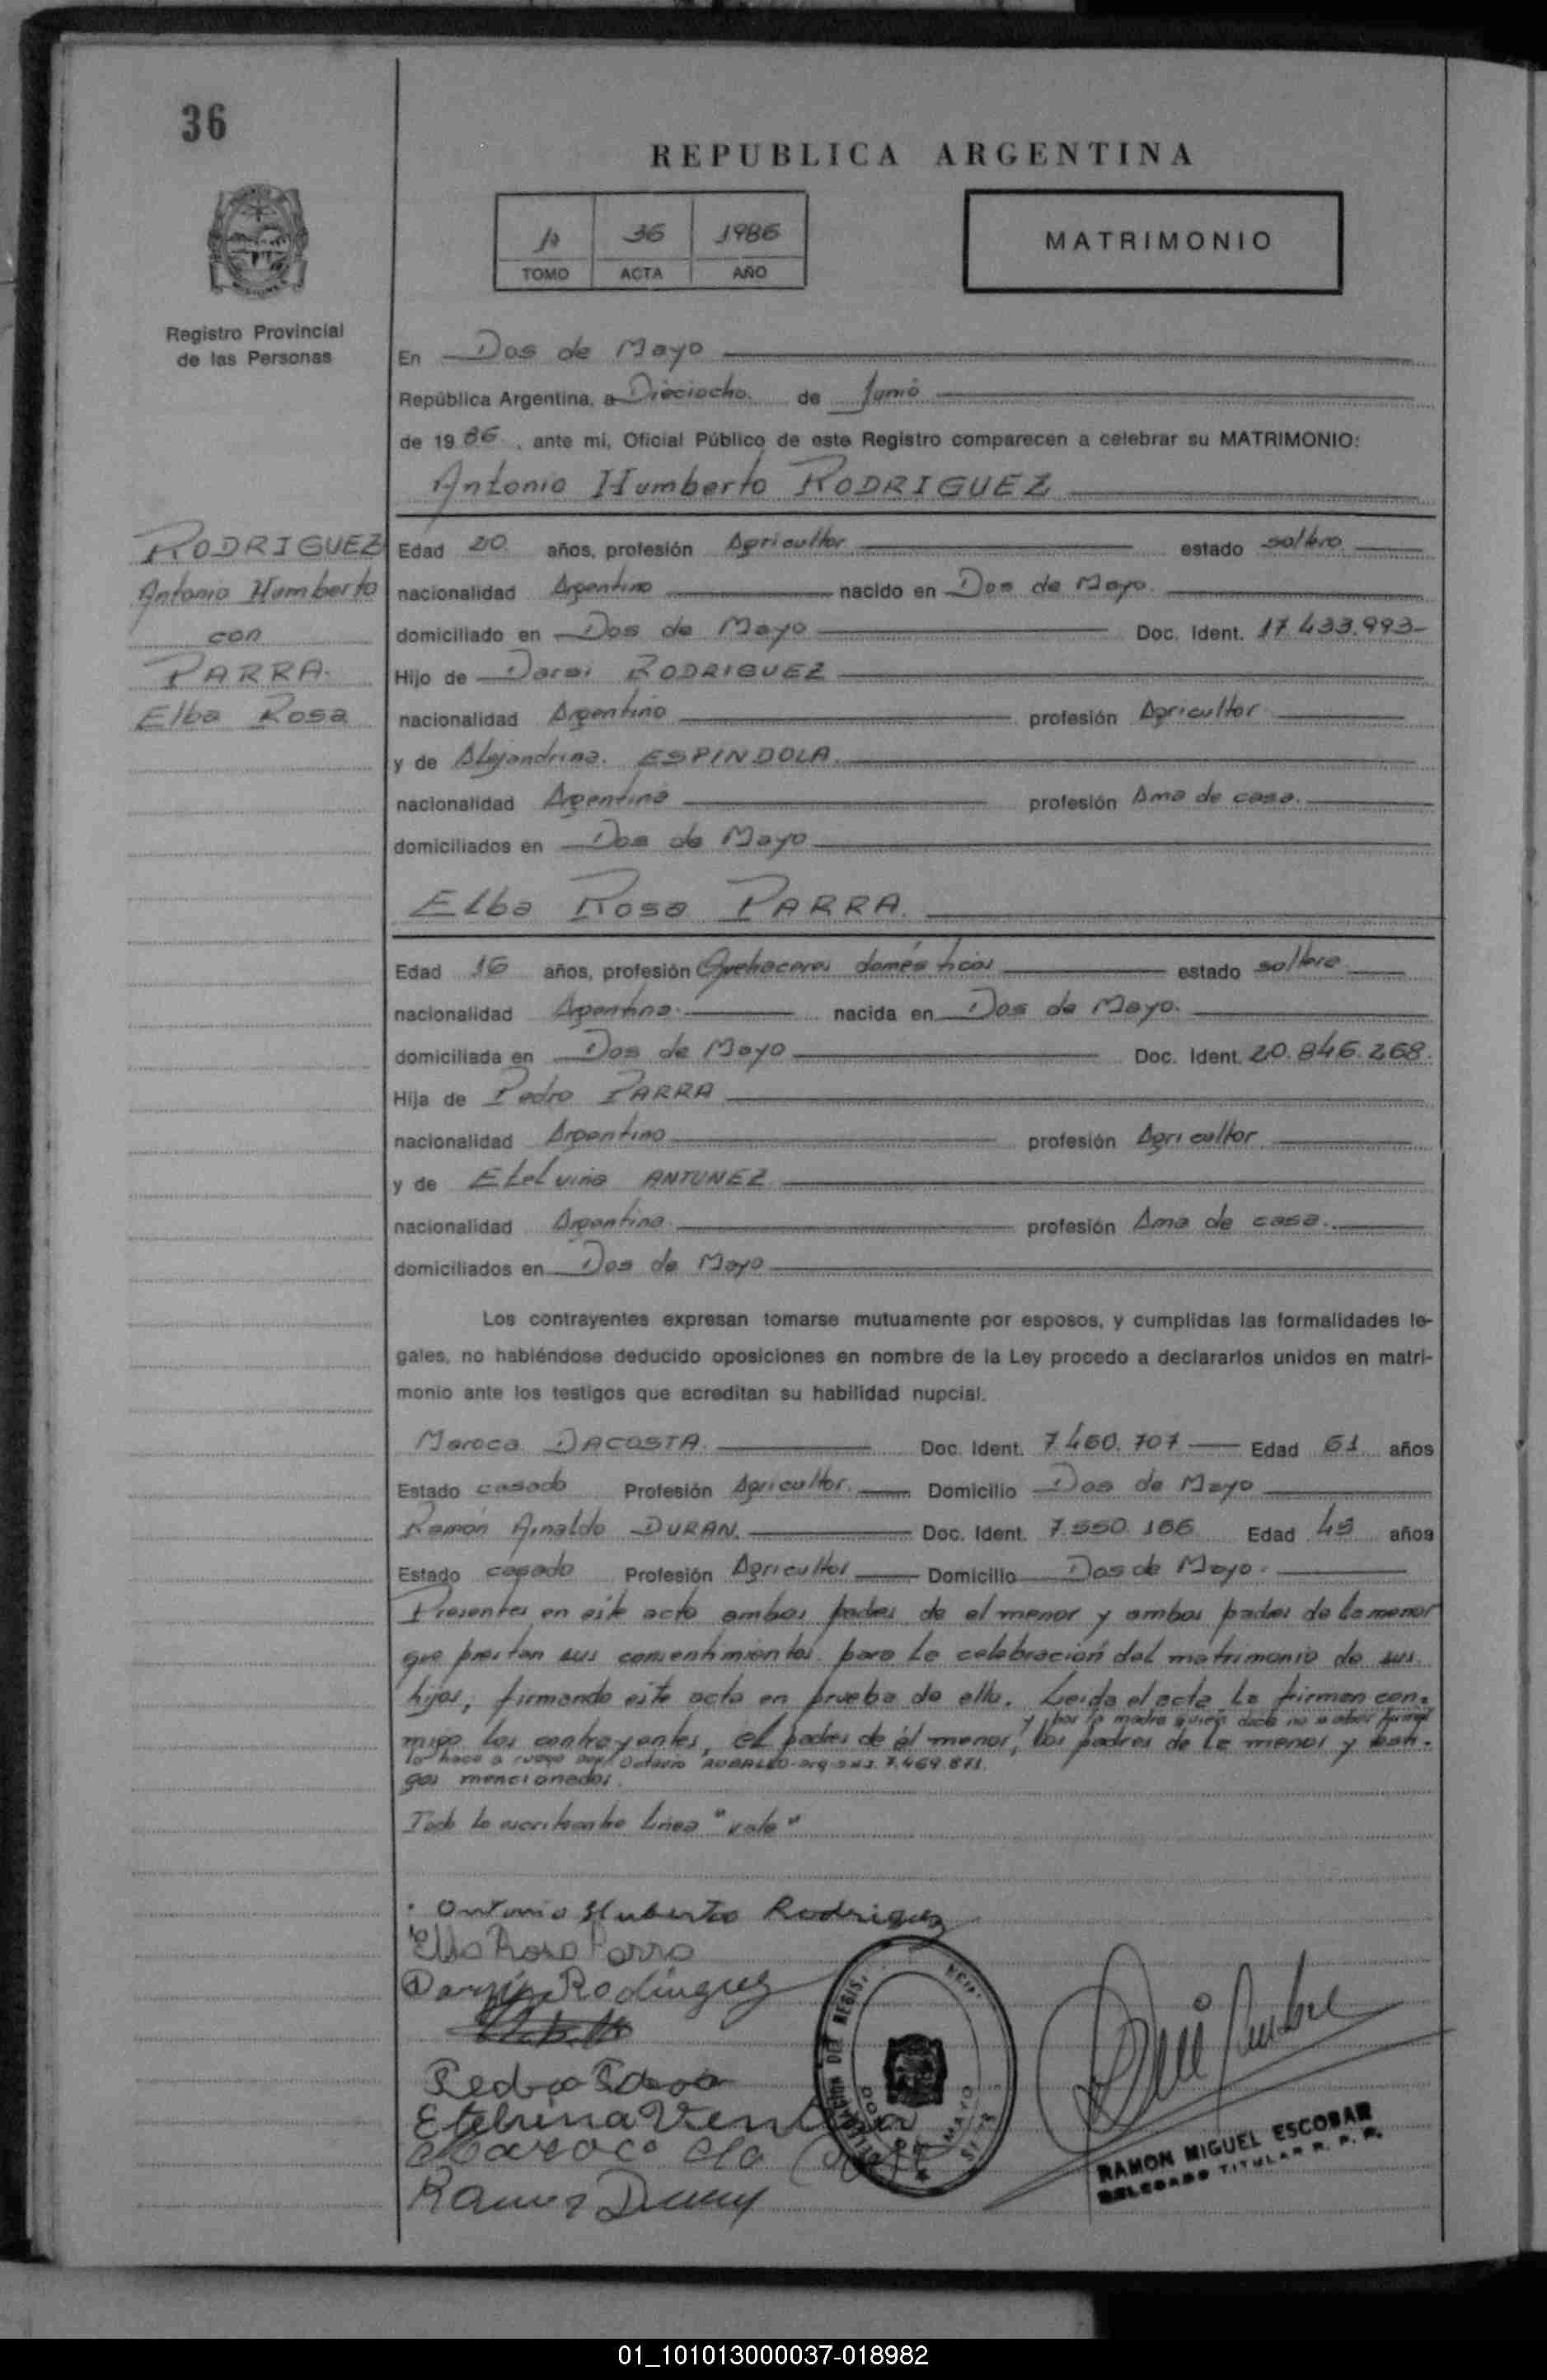 36
REPUBLICA ARGENTINA
36 1986
TOMO ACTA AÑO
MATRIMONIO
Registro Provincial
de las Personas
En Dos de Mayo
República Argentina, a Dieciocho de Junio
de 1986, ante mi, Oficial Público de este Registro comparecen a celebrar su MATRIMONIO:
Antonio Humberto RODRIGUEZ
RODRIGUEZ
Antonio Humberto
con
PARRA
Elba Rosa
Edad 20 años, profesión Agricultor estado soltero
nacionalidad Argentino nacido en Dos de Mayo.
domiciliado en Dos de Mayo Doc. Ident. 17.433.993-
Hijo de Darsi RODRIGUEZ
nacionalidad Argentino profesión Agricultor
y de Alejandrina. ESPINDOLA.
nacionalidad Argentina profesión Ama de casa.
domiciliados en Dos de Mayo
Elba Rosa PARRA.
Edad 16 años, profesión Quehaceres domésticos estado soltera
nacionalidad Argentina. nacida en Dos de Mayo.
domiciliada en Dos de Mayo Doc. Ident. 20.846.268.
Hija de Pedro PARRA
nacionalidad Argentino profesión Agricultor
y de Etelvina ANTUNEZ
nacionalidad Argentina. profesión Ama de casa.
domiciliados en Dos de Mayo
Los contrayentes expresan tomarse mutuamente por esposos, y cumplidas las formalidades le-
gales, no habiéndose deducido oposiciones en nombre de la Ley procedo a declararlos unidos en matri-
monio ante los testigos que acreditan su habilidad nupcial.
Maroca DACOSTA. Doc. Ident. 7.460.707 Edad 61 años
Estado casado Profesión Agricultor. Domicilio Dos de Mayo
Ramón Arnaldo DURAN. Doc. Ident. 7.550.166 Edad 49 años
Estado casado Profesión Agricultor Domicilio Dos de Mayo.
Presentes en este acto ambos padres de el menor y ambos padres de la menor
que prestan sus consentimientos para la celebración del matrimonio de sus
hijos, firmando este acta en prueba de ello. Leida el acta la firman con-
y por la madre quien dice no saber firmar
migo los contrayentes, el padres de el menor, los padres de la menor y testi-
lo hace a ruego Octavio 7.469.871.
gos mencionados.
Todo lo escrito entre linea "vale"
Antonio Huberto Rodriguez
Elba Rosa Parra
Darsi Rodriguez
Pedro Parra
Etelvina
Maroca da
Ramon
DOS DE MAYO
RAMON MIGUEL ESCOBAR
DELEGADO TITULAR R. P. P.
01_101013000037-018982